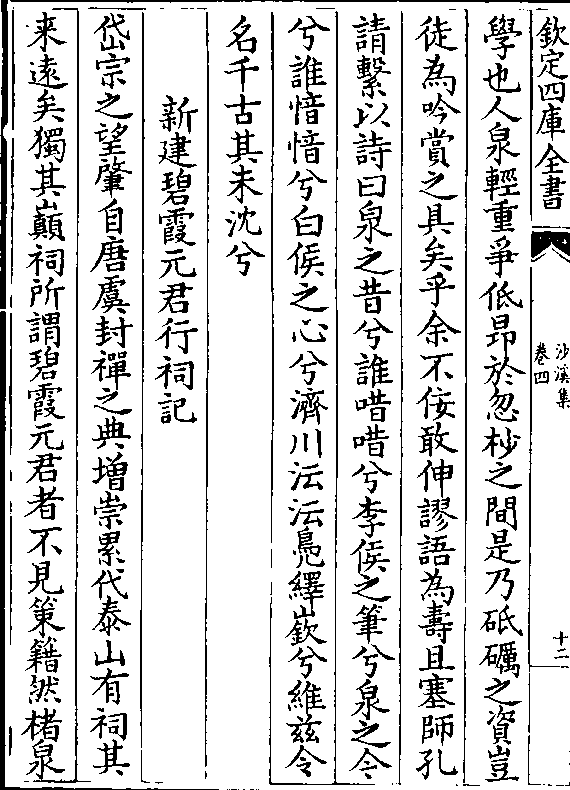 欽定四庫全書
沙溪集
卷四
十二
學也人泉輕重爭低昂於忽杪之間是乃砥礪之資豈
徒為吟賞之具矣乎余不佞敢伸謬語為壽且塞師孔
請繫以詩曰泉之昔兮誰唶唶兮李侯之筆兮泉之今
兮誰愔愔兮白侯之心兮濟川沄沄鳧繹嶔兮維兹令
名千古其未沈兮
新建碧霞元君行祠記
岱宗之望肇自唐虞封禪之典增崇累代泰山有祠其
来遠矣獨其巔祠所謂碧霞元君者不見策籍然楮泉